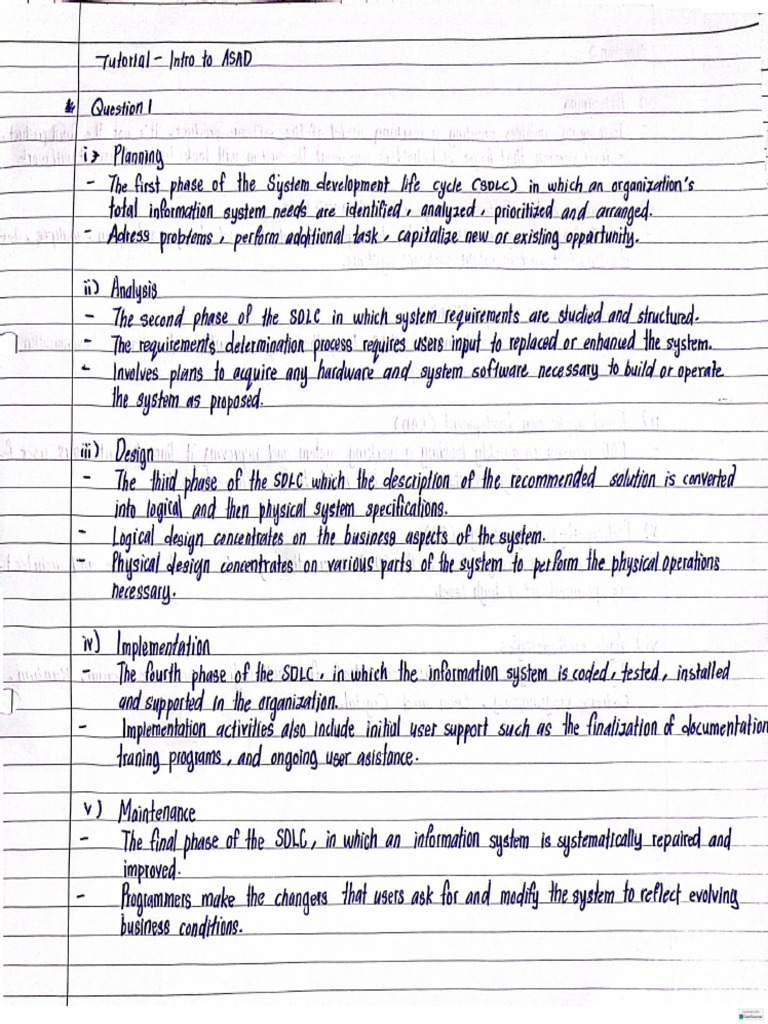 Tutorial - Intro to ASAD
* Question 1
i) Planning
- The first phase of the System development life cycle (SDLC) in which an organization's
total information system needs are identified, analyzed, prioritized and arranged.
- Adress problems, perform additional task, capitalize new or existing opportunity.
ii) Analysis
- The second phase of the SDLC in which system requirements are studied and structured.
- The requirements determination process requires users input to replaced or enhanced the system.
- Involves plans to acquire any hardware and system software necessary to build or operate
the system as proposed.
iii) Design
- The third phase of the SDLC which the description of the recommended solution is converted
into logical and then physical system specifications.
- Logical design concentrates on the business aspects of the system.
- Physical design concentrates on various parts of the system to perform the physical operations
necessary.
iv) Implementation
- The fourth phase of the SDLC, in which the information system is coded, tested, installed
and supported in the organization.
- Implementation activities also include initial user support such as the finalization of documentation
traning programs, and ongoing user asistance.
v) Maintenance
- The final phase of the SDLC, in which an information system is systematically repaired and
improved.
- Programmers make the changers that users ask for and modify the system to reflect evolving
business conditions.
CamScanner